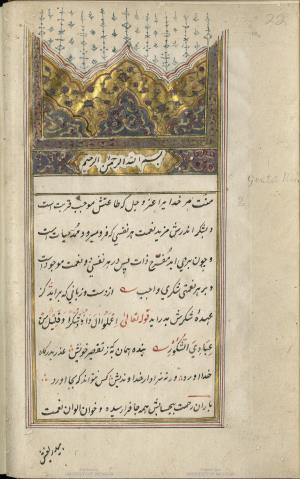 بسم الله الرحمن الرحیم
منت مر خدایرا عز و جل که طاعتش موجب قربت است
و بشکر اندرش مزید نعمت هر نفسی که فرو میرود ممد حیات است
و چون برمی آید مفرح ذات پس در هر نفسی دو نعمت موجود است
و بر هر نعمتی شکری واجب از دست و زبانی که برآید کز
عهده شکرش بدر آید قوله تعالی اعملوا آل داود شکرا و قلیل من
عبادی الشکور بنده همان به که ز تقصیر خویش عذر بدرگاه
خدا آورد ورنه سزاوار خداوندیش کس نتواند که بجا آورد
باران رحمت بیحسابش همه جا فرا رسیده و خوان الوان نعمت
22